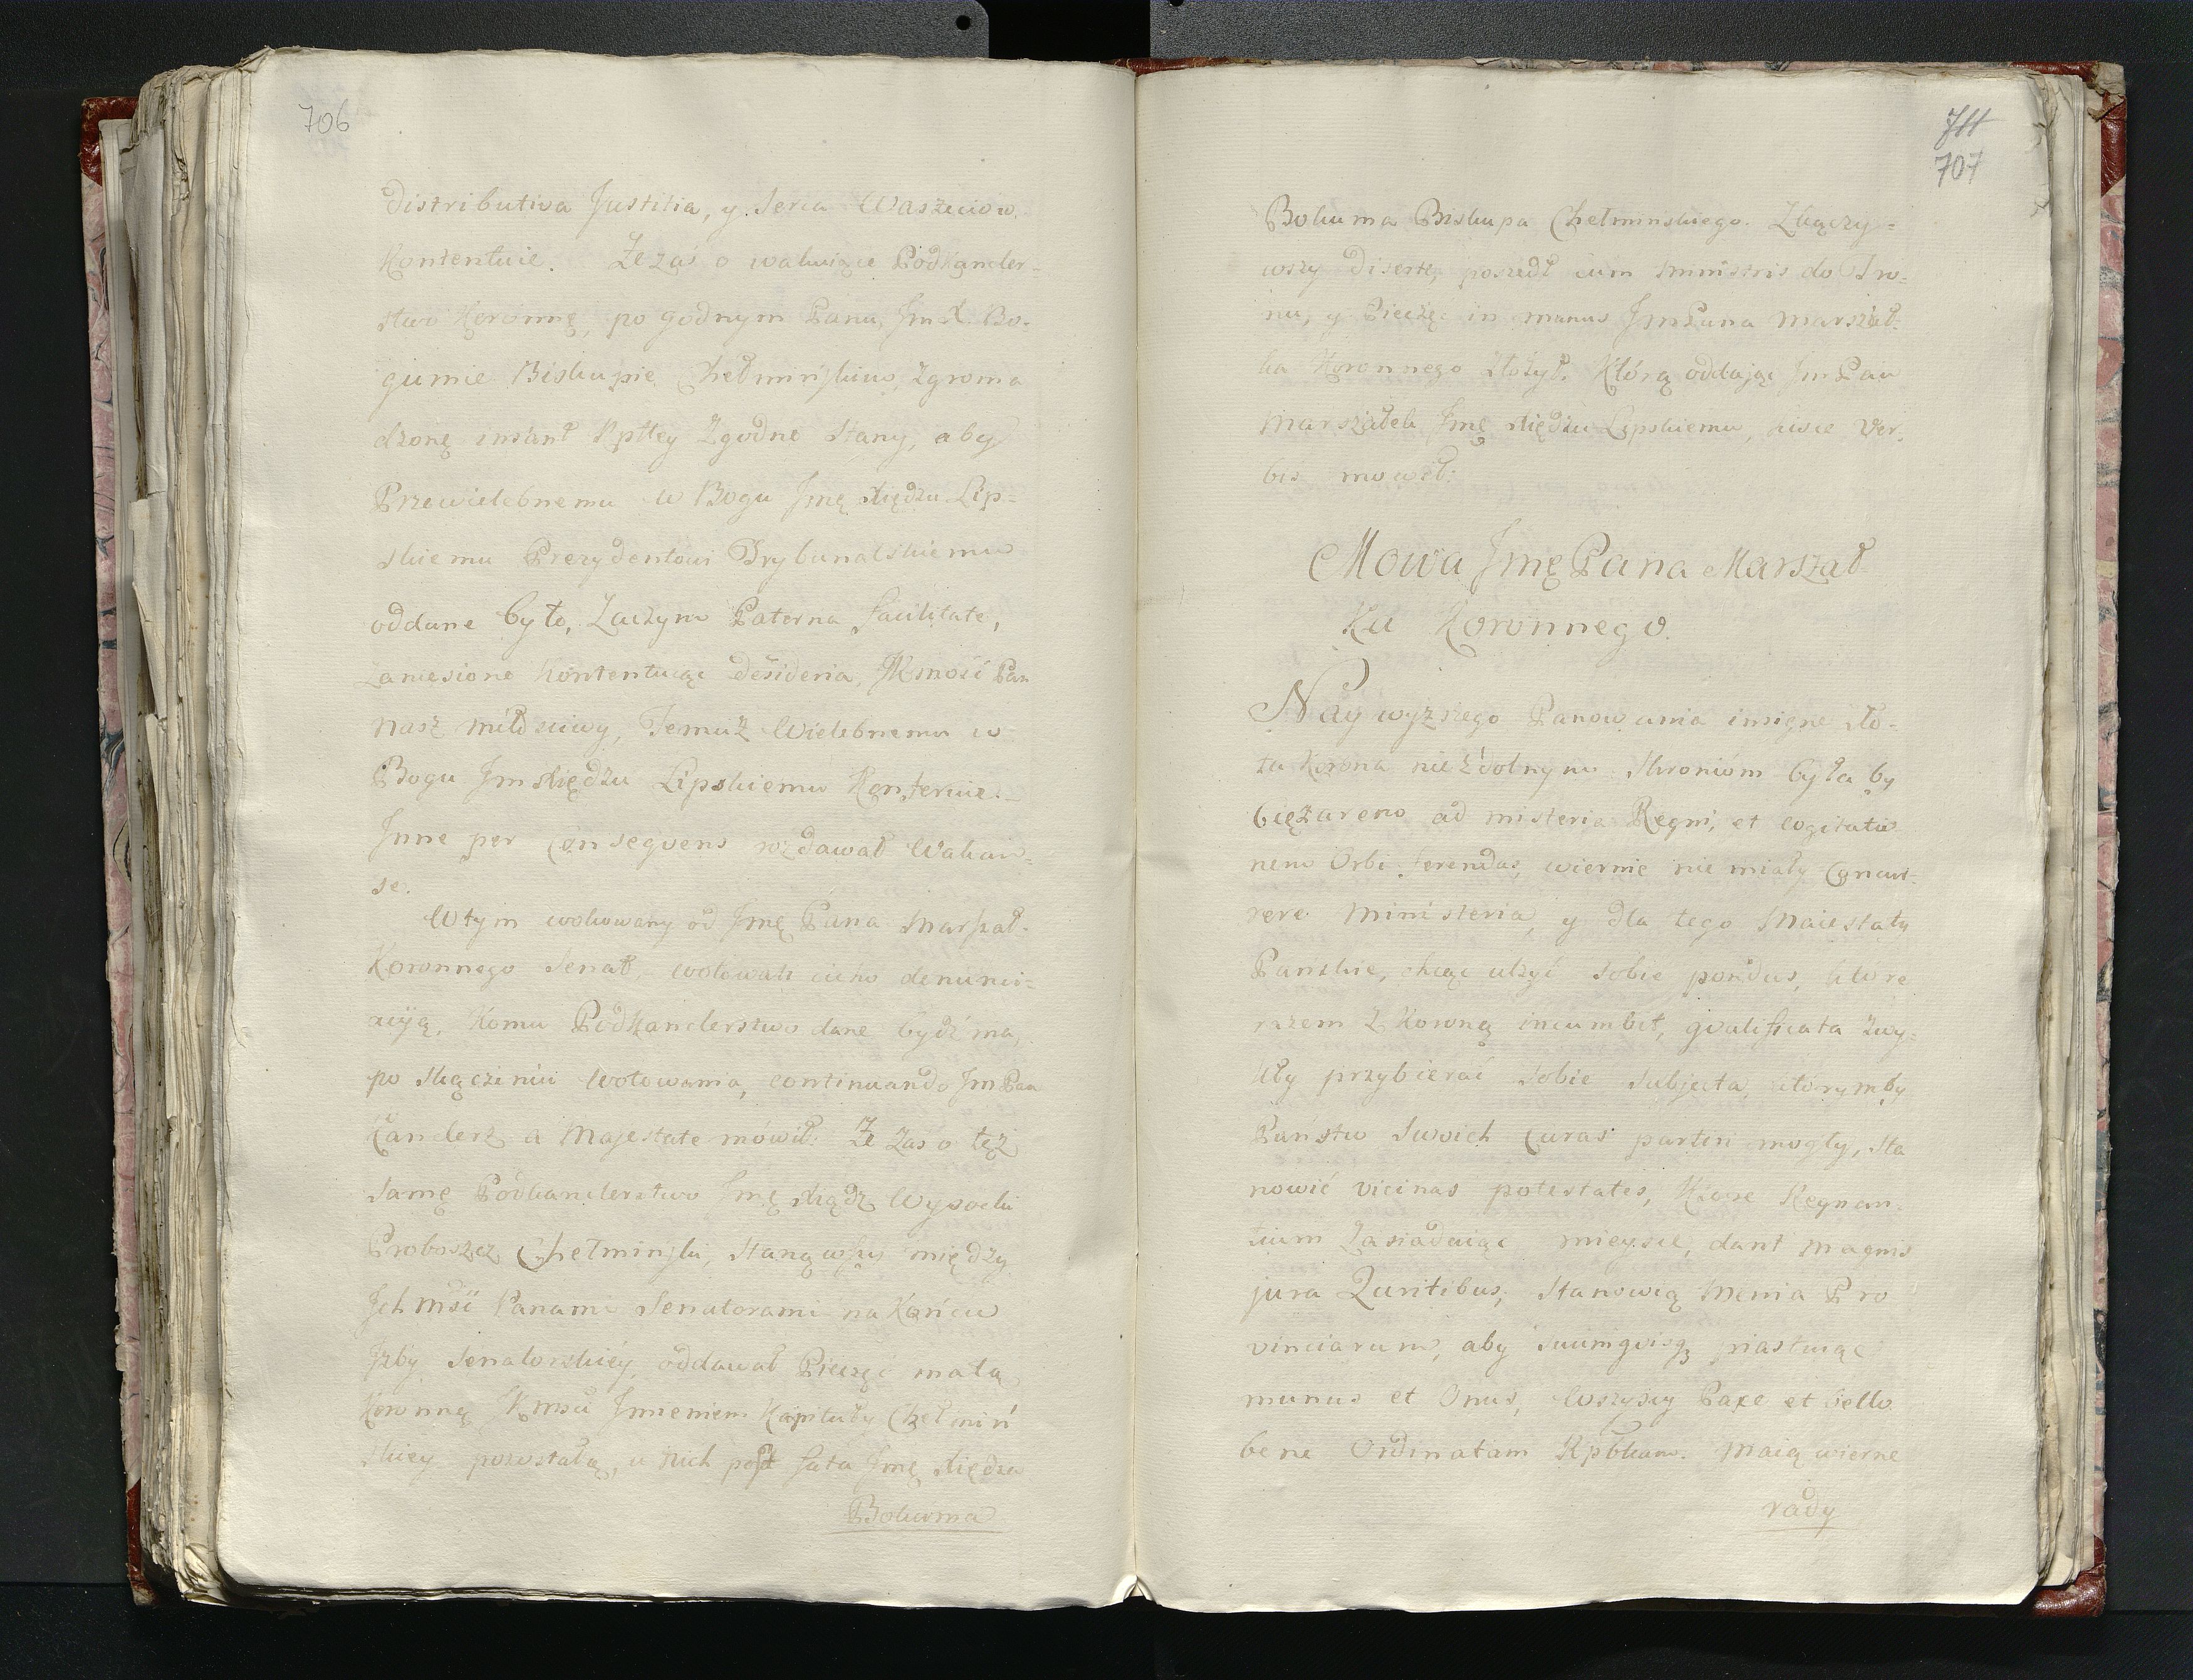 706
distributiva Justitia, y serca Waszeciow
Kontentuie. Że zaś o wakuiące Podkancler=
stwo Koronnę, po godnym Panu, Jm X. Bo-
gumie Biskupie Chełmińskim, zgroma
dzonę instant Rptey Zgodne Stany, aby
Przewielebnemu w Bogu Jmę Xiędzu Lip=
skiemu Prezydentowi Trybunalskiemu
oddane było, Zaczym Paterna facilitate,
zaniesione Kontentuiąc desideria, JKmość Pan
nasz miłościwy, Temuż Wielebnemu w
Bogu Jm Xiędzu Lipskiemu Konferuie.
Inne per consequens rozdawał Wakan=
se.
Wtym wokowany od Jmę Pana Marszał.
Koronnego Senat, wotowali cicho denunci=
acyią, Komu Podkanclerstwo dane bydź ma,
po skączeniu Wotowania, continuando Jm Pan
Canclerz a Majestate mówił: Że zas o tęż
samę Podkanclerstwo Jmę Xiądz Wysocki
Proboszcz Chełminski, stanąwszy między
Ich Mści Panami Senatorami na Końcu
Izby Senatorskiey, oddawał Pieczęć małą
Koronną JKmści Imieniem Kapituły Chełmiń
skiey pozostałą, u nich post fata Jmę Xiędza
Bokuma
711
707
Bokuma Biskupa Chełminskiego. Zkączy=
wszy diserte, poszedł cum Ministris do Tro-
nu, y Pieczęć in manus JmPana Marszał=
ka Koronnego złożył. Którą oddając Jm Pan
Marszałek Jmę Xiędzu Lipskiemu, hisce Ver.
bis mowił:
Mowa Jmę Pana Marszał
Ka Koronnego.
Naywyzszego Panowania insigne zło-
ta Korona niezdolnym Skroniom byłaby
ciężarem ad misteria Regni, et cogitatio
nem Orbi ferendas, wiernie nie miały Concur-
rere Ministeria, y dla tego Maiestaty
Pańskie, chcąc ulżyć sobie pondus, ktore
razem z Koroną incumbit, qvalificata zwy-
kły przybierać sobie Subjecta, ktorymby
Państw Swoich curas partiri mogły, Sta
nowić vicinas potestates, Które Regnan-
tium Zasiadaiąc mieysce, dant magnis
jura Quiritibus, Stanowią Menia Pro
vinciarum, aby suumqvisq piastuiąc
munus et Onus, wszyscy Pace et bello
bene Ordinatam Rpblicam. Maią wierne
rady